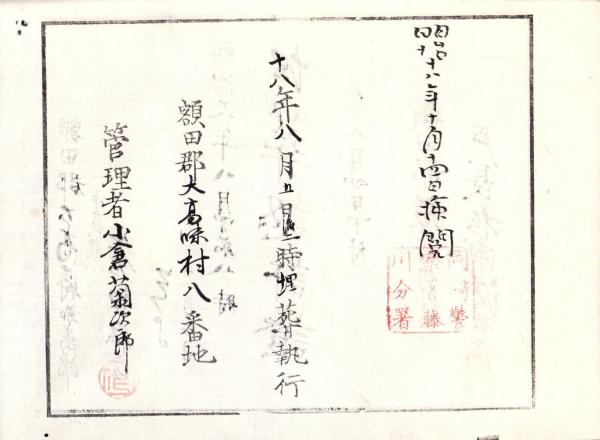 明治十八年十月十四日検閲
岡崎警
察署藤
川分署
十八年八月五日正時埋葬執行
額田郡大高味村八番地
管理者小倉菊次郎